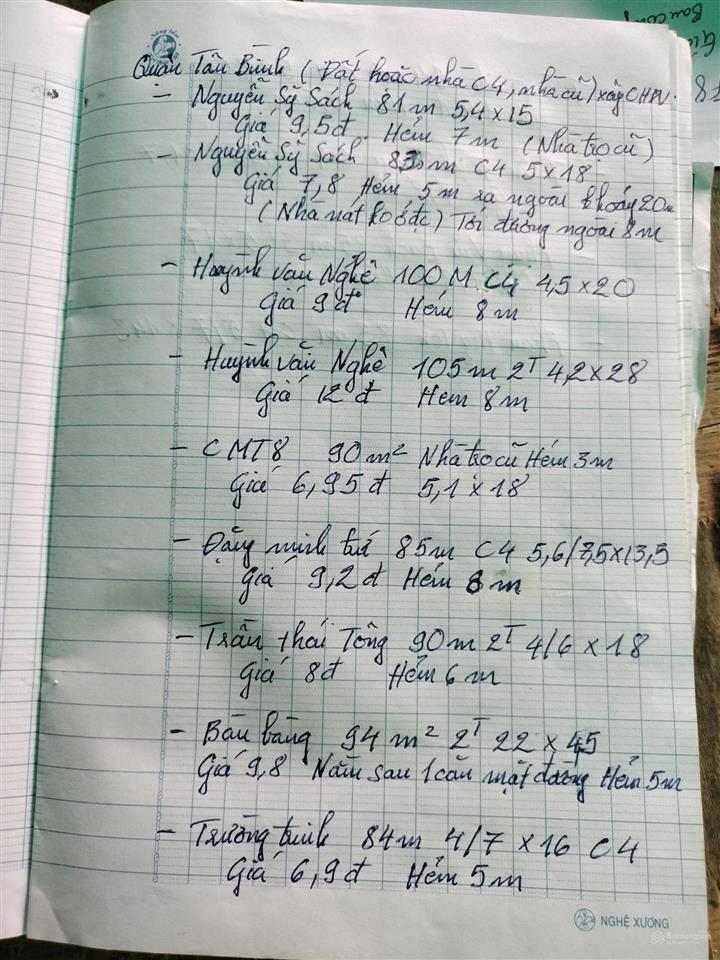 Quận Tân Bình (Đất hoặc nhà C4, nhà cũ) xây CHDV.
- Nguyễn Sỹ Sách 81m 5,4x15
Giá 9,5đ. Hẻm 7m (Nhà trọ cũ)
- Nguyễn Sỹ Sách 83m C4 5x18
Giá 7,8 Hẻm 5m ra ngoài khoảng 20m
(Nhà nát ko ở đc) Tới đường ngoài 8m
- Huỳnh Văn Nghệ 100M C4 4,5x20
Giá 9đ Hẻm 8m
- Huỳnh Văn Nghệ 105m 2T 4,2x28
Giá 12đ Hem 8m
- CMT8 90m² Nhà trọ cũ Hẻm 3m
Giá 6,95đ 5,1x18
- Đặng minh trứ 85m C4 5,6/7,5x13,5
Giá 9,2đ Hẻm 8m
- Trần thái Tông 90m 2T 4/6 x 18
Giá 8đ Hẻm 6m
- Bàu bàng 94m² 2T 22 x 4,5
Giá 9,8 Nằm sau 1 căn mặt đường Hẻm 5m
- Trường trinh 84m 4/7 x 16 C4
Giá 6,9đ Hẻm 5m
NGHỆ XƯƠNG